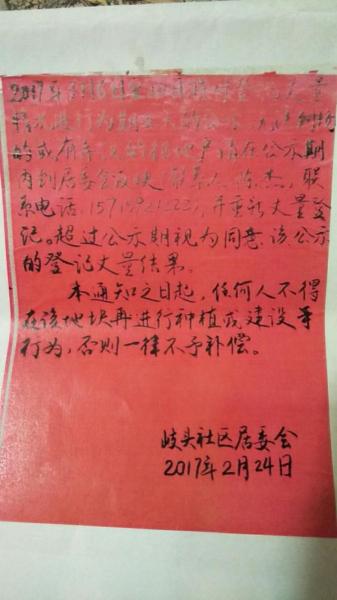 2017年
情况进行为期五天的公示，
的或有异议的租地户请在公示期
内到居委会反映（联系人：陈杰，联
系电话：），并重新丈量登
记。超过公示期视为同意该公示
的登记丈量结果。
本通知之日起，任何人不得
在该地块再进行种植或建设等
行为，否则一律不予补偿。
岐头社区居委会
2017年2月24日